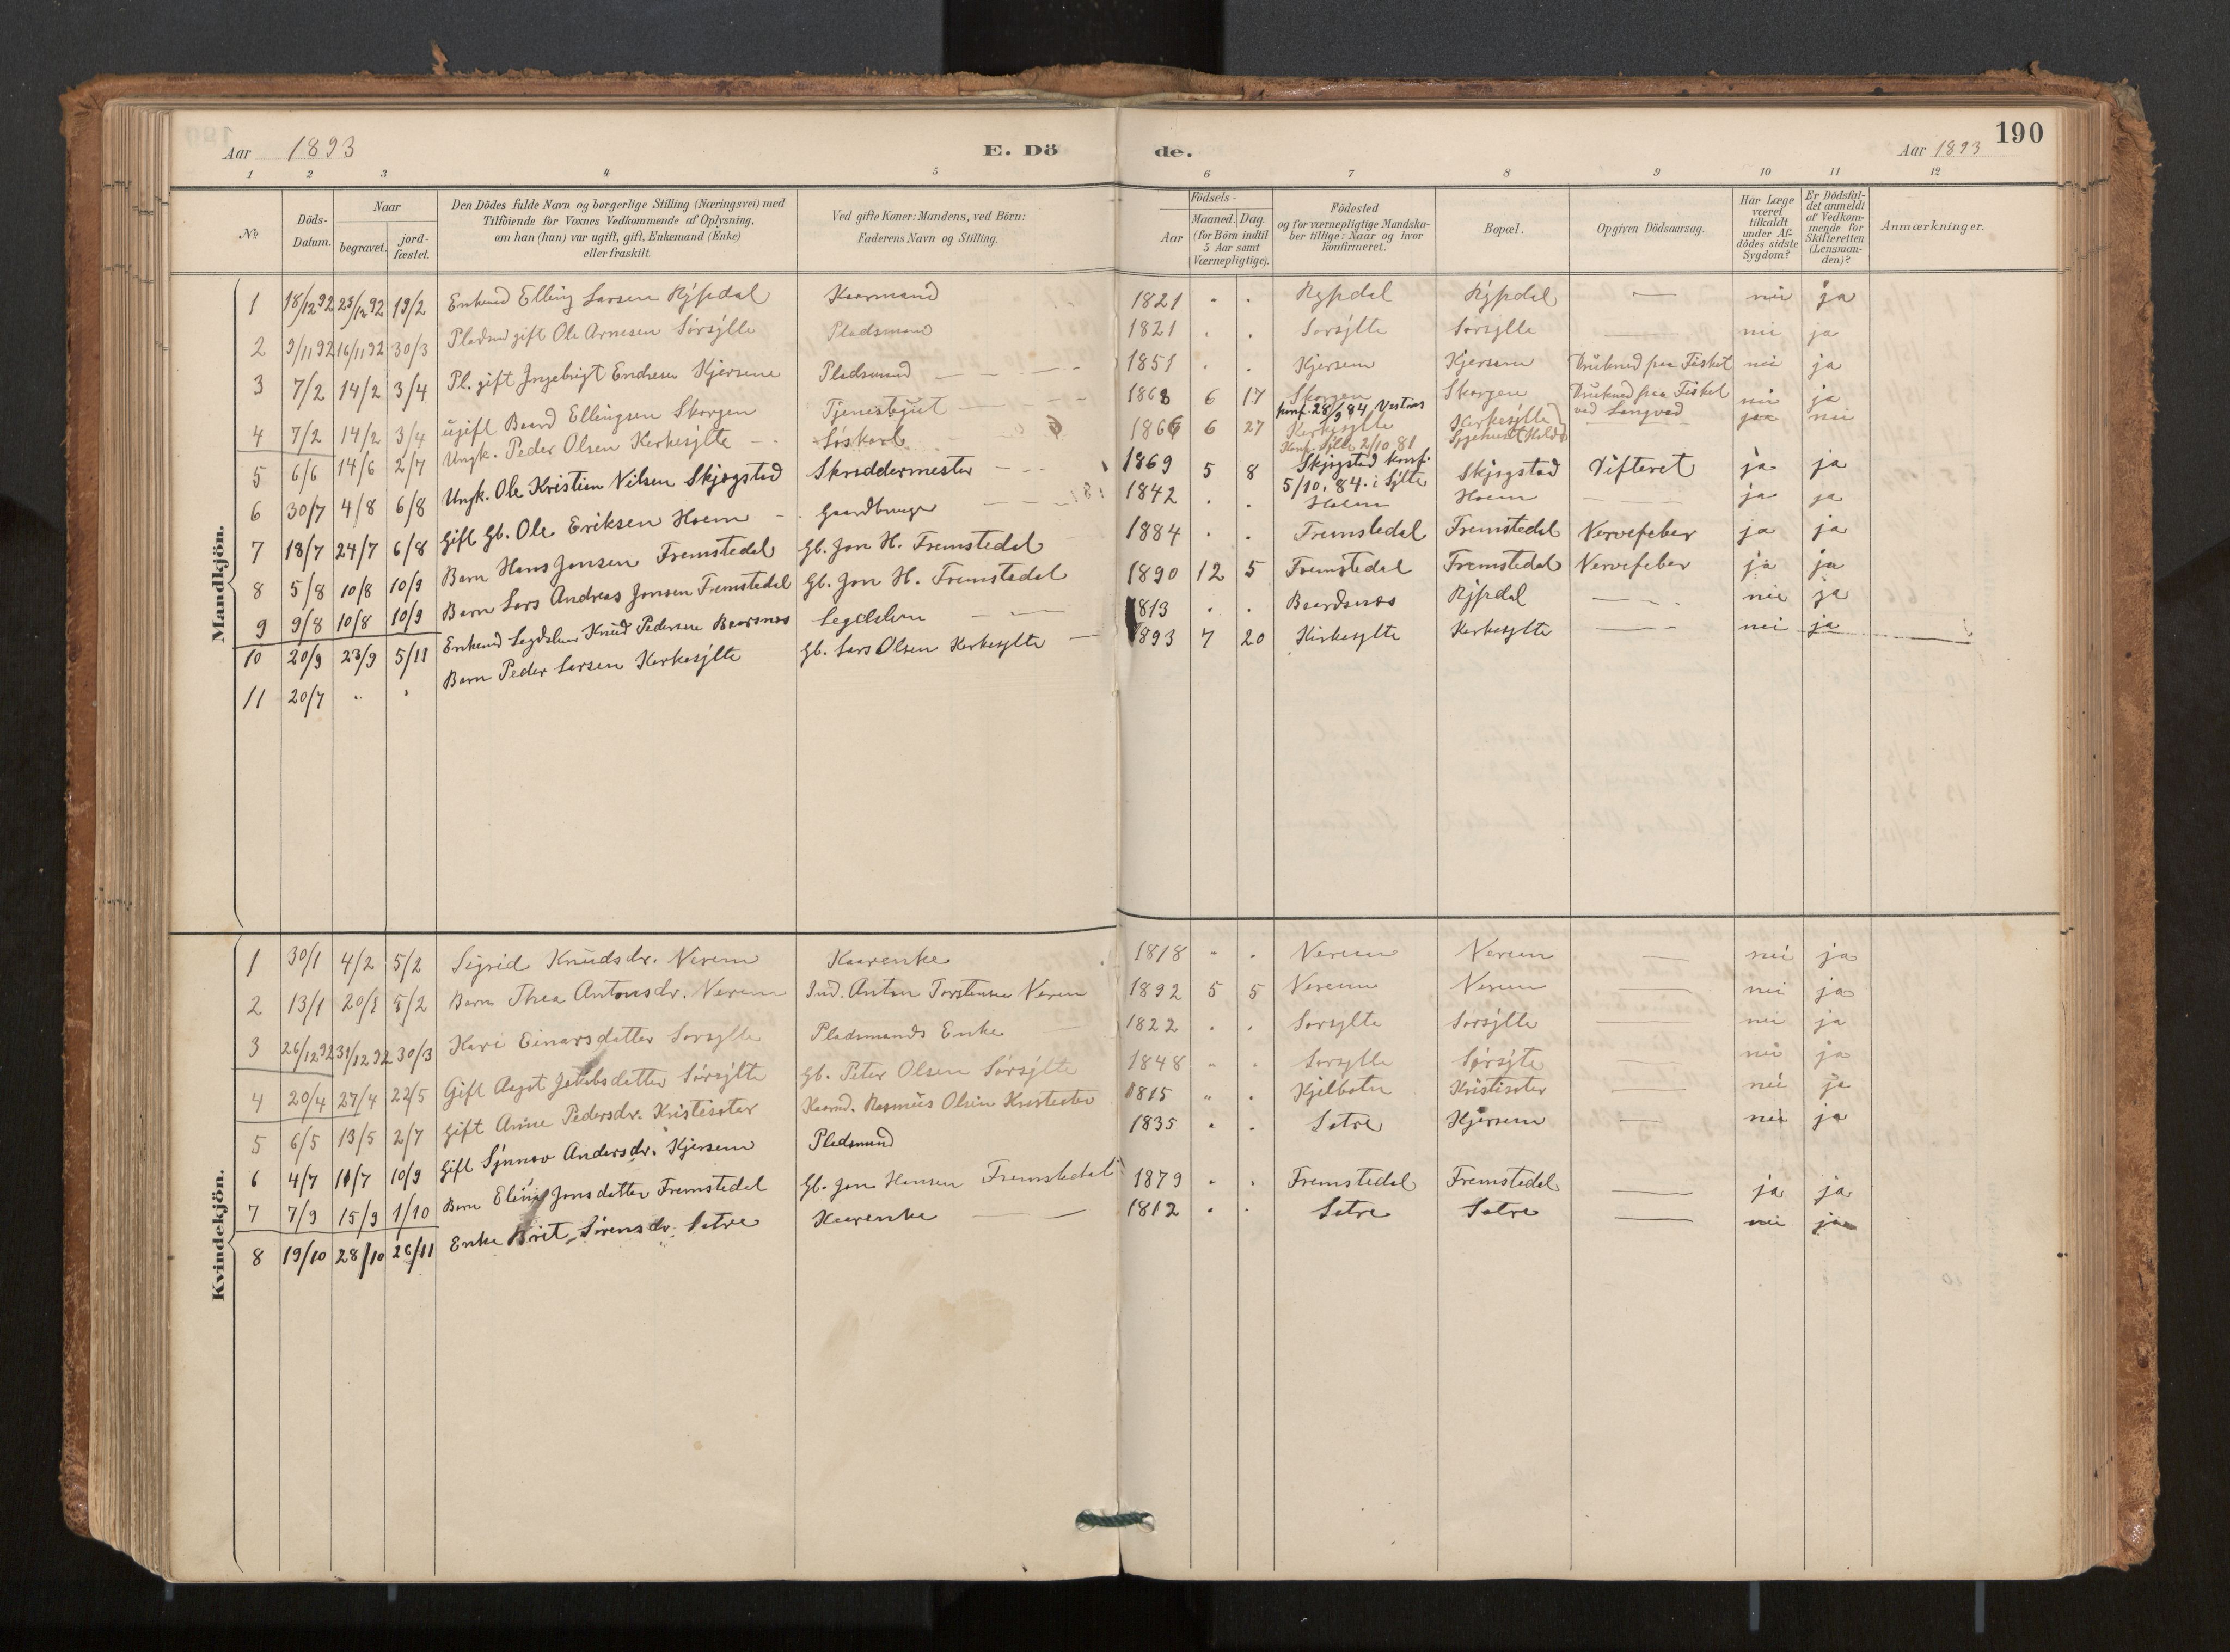 Aar 1893
E. Dö
de.
Aar 1893
190
1 2 3 4 5 6 7 8 9 10 11 12
№
Döds-
Datum.
Naar
begravet.
jord-
fæstet.
Den Dödes fulde Navn og borgerlige Stilling (Næringsvei) med
Tilföiende for Voxnes Vedkommende af Oplysning,
om han (hun) var ugift, gift, Enkemand (Enke)
eller fraskilt.
Ved gifte Koner: Mandens, ved Börn:
Faderens Navn og Stilling.
Födsels-
Aar
Maaned. Dag.
(for Börn indtil
5 Aar samt
Værnepligtige).
Födested
og for værnepligtige Mandska-
ber tillige: Naar og hvor
konfirmeret.
Bopæl.
Opgiven Dödsaarsag.
Har Læge
været
tilkaldt
under Af-
dödes sidste
Sygdom?
Er Dödsfal-
det anmeldt
af Vedkom-
mende for
Skifteretten
(Lensman-
den)?
Anmærkninger.
Mandkjön.
1 18/12 92 25/12 92 19/2 Enkemd Elling Larsen Rypdal Kaarmand 1821 Rypdal Rypdal — nei ja
2 9/11 92 16/11 92 30/3 gift Ole Arnesen Sörsylte Pladsmand 1821 Sörsylte Sörsylte — nei ja
3 7/2 14/2 3/4 Pl. gift Ingebrigt Endresen Kjersem Pladsmand 1851 Kjersem Kjersem Drukned paa Fisket nei ja
4 7/2 14/2 3/4 ugift Baard Ellingsen Skorgen Tjenestgut 1868 6 17 Skorgen Skorgen Drukned paa Fisket nei ja
konf. 28/9 84 Vestnes ved
5 6/6 14/6 2/7 Ungk. Peder Olsen Kirkesylte Löskarl 1866 6 27 Kirkesylte Kirkesylte jaa nei
Konf. Sylte 2/10 81
6 30/7 4/8 6/8 Ungk. Ole Kristian Nilsen Skjøgstad Skræddermester 1869 5 8 Skjøgstad konf. Skjøgstad Difteret ja ja
5/10. 84. i Sylte
7 18/7 24/7 6/8 Gift Gb. Ole Eriksen Hoem Gaardbruger 1842 Hoem Hoem — ja ja
8 5/8 10/8 10/9 Barn Hans Jonsen Fremstedal Gb. Jon H. Fremstedal 1884 Fremstedal Fremstedal Nervefeber ja ja
9 9/8 10/8 10/9 Barn Lars Andreas Jonsen Fremstedal Gb. Jon H. Fremstedal 1890 12 5 Fremstedal Fremstedal Nervefeber ja ja
10 20/9 23/9 5/11 Enkemd Legdslem Knud Pedersen Baarsnes Legdslem 1813 Baardsnes Rypdal — nei ja
11 20/7 Barn Peder Larsen Kirkesylte Gb. Lars Olsen Kirkesylte 1893 7 20 Kirkesylte Kirkesylte — nei ja
Kvindekjön.
1 30/1 4/2 5/2 Sigrid Knudsdr. Nerem Kaarenke 1818 Nerem Nerem — nei ja
2 13/1 20/1 5/2 Barn Thea Antonsdr. Nerem Ind. Anton Torstensen Nerem 1892 5 5 Nerem Nerem — nei ja
3 26/12 92 31/12 92 30/3 Kari Einarsdatter Sörsylte Pladsmands Enke 1822 Sorsylte Sorsylte — nei ja
4 20/4 27/4 22/5 Gift Jakobsdatter Sörsylte Gb. Peter Olsen Sörsylte 1848 Sorsylte Sörsyte — nei ja
5 6/5 13/5 2/7 Gift Anne Pedersdr. Kristisæter Kaarmd. Rasmus Olsen Kristesæter 1815 Kjelbotn Kristisæter nei ja
6 4/7 11/7 10/9 Gift Synnøv Andersdr. Kjersem Pladsmand 1835 Sætre Kjersem — nei ja
7 7/9 15/9 1/10 Barn Jonsdatter Fremstedal Gb. Jon Hansen Fremstedal 1879 Fremstedal Fremstedal — ja ja
8 19/10 28/10 26/11 Enke Brit Sörensdr. Sætre Kaarenke 1812 Sætre Sætre — nei ja